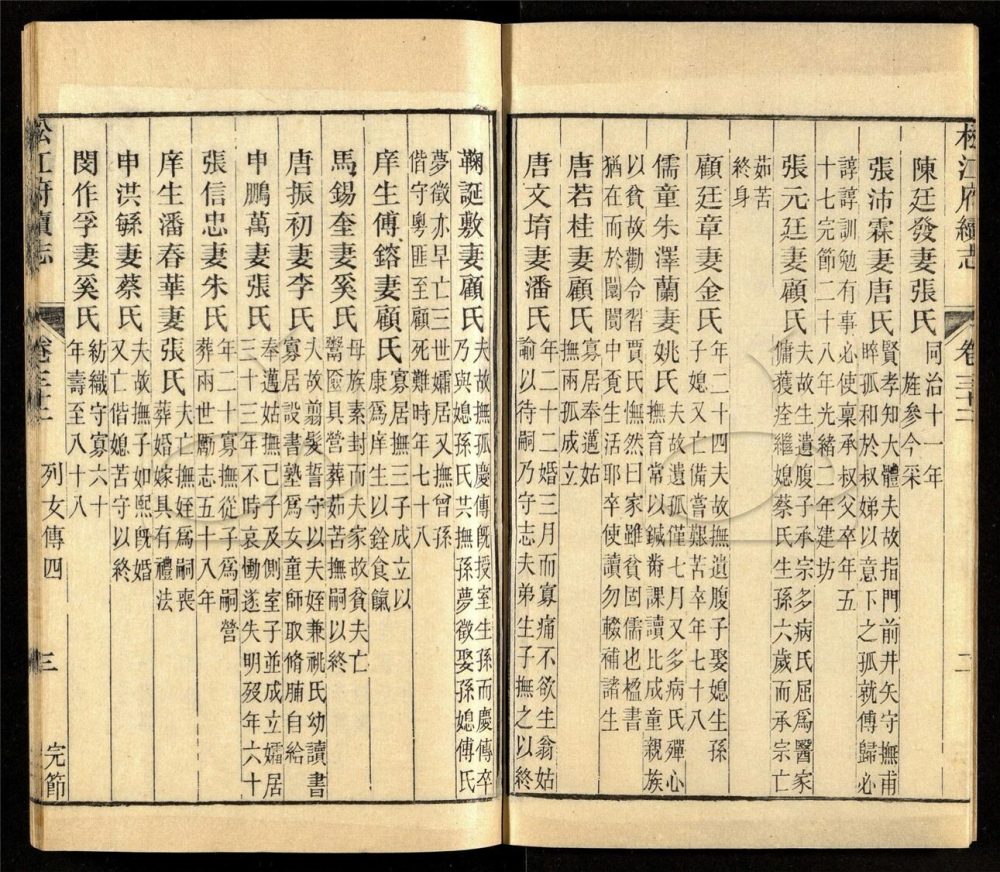 松江府續志　卷三十二　二
陳廷發妻張氏
同治十一年
旌參今采
張沛霖妻唐氏
賢孝知大體夫故指門前井矢守撫甫
晬孤和於叔娣以意下之孤就傅歸必
諄諄訓勉有事必使稟承叔父卒年五
十七完節二十八年光緒二年建坊
張元廷妻顧氏
夫故生遺腹子承宗多病氏屈爲醫家
傭獲痊繼媳蔡氏生孫六歲而承宗亡
茹苦
終身
顧廷章妻金氏
年二十四夫故撫遺腹子娶媳生孫
三子又亡備嘗艱苦卒年七十八
儒童朱澤蘭妻姚氏
夫故遺孤僅七月又多病氏殫心
撫育常以鍼黹課讀比成童親族
以貧故勸令習賈氏憮然曰家雖貧固儒也楹書
猶在而於闤闠中覓生活耶卒使讀勿輟補諸生
唐若桂妻顧氏
寡居奉邁姑
撫兩孤成立
唐文堉妻潘氏
年二十二婚三月而寡痛不欲生翁姑
諭以待嗣乃守志夫弟生子撫之以終
鞠誕敷妻顧氏
夫故撫孤慶傳旣授室生孫而慶傳卒
乃與媳孫氏共撫孫夢徵娶孫媳傅氏
夢徵亦早亡三世孀居又撫曾孫
偕守粵匪至顧死難時年七十八
庠生傅鎔妻顧氏
寡居撫三子成立以
康爲庠生以銓食餼
馬錫奎妻奚氏
母族素封而夫家故貧夫亡
鬻奩具營葬茹苦撫嗣以終
唐振初妻李氏
夫故翦髮誓守以夫姪兼祧氏幼讀書
寡居設書塾爲女童師取脩脯自給
申鵬萬妻張氏
奉邁姑撫己子及側室子並成立孀居
三十三年不時哀慟遂失明歿年六十
張信忠妻朱氏
年二十寡撫從子爲嗣營
葬兩世勵志五十八年
庠生潘春華妻張氏
夫亡撫姪爲嗣喪
葬婚嫁具有禮法
申洪緐妻蔡氏
夫故撫子如熙旣婚
又亡偕媳苦守以終
閔作孚妻奚氏
紡織守寡六十
年壽至八十八
松江府續志　卷三十二　列女傳四　三　完節